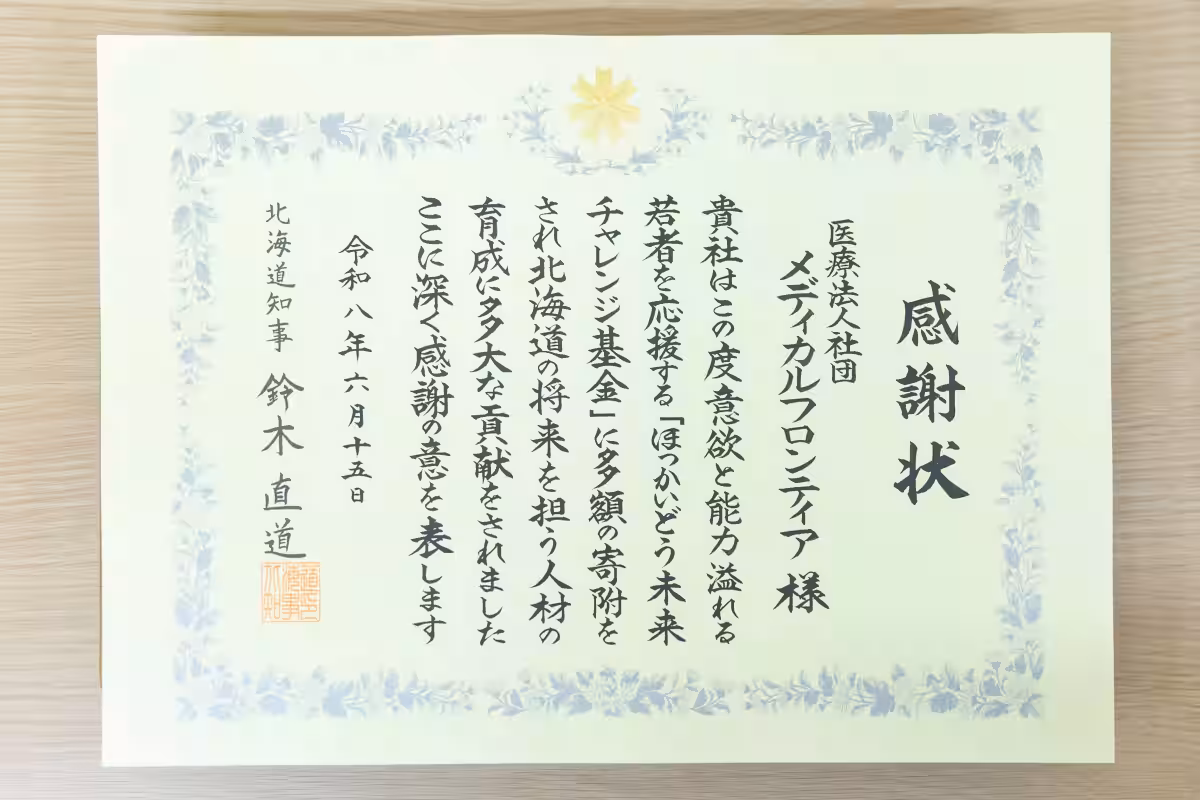 感謝状
医療法人社団
メディカルフロンティア 様
貴社はこの度意欲と能力溢れる
若者を応援する「ほっかいどう未来
チャレンジ基金」に多額の寄附を
され北海道の将来を担う人材の
育成に多大な貢献をされました
ここに深く感謝の意を表します
令和八年六月十五日
北海道知事 鈴木直道